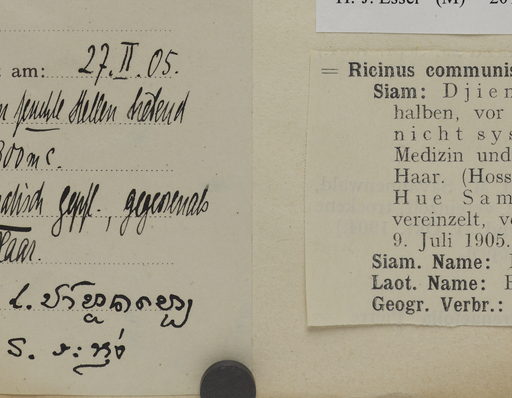 H. J. Esser (M)
am: 27. II. 05.
feuchte Stellen liebend
300 m c.
gepfl., gegessen als
Haar.
L.
S. ระหุ่ง
= Ricinus communis
Siam: Djien
halben, vor
nicht sys
Medizin und
Haar. (Hoss
Hue Sam
vereinzelt, v
9. Juli 1905.
Siam. Name:
Laot. Name:
Geogr. Verbr.: